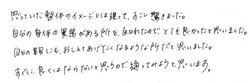 思っていた整体のイメージとは違って、すごく驚きました。
自分の身体の異常がある所を、言われたのでとても良かったと思いました。
自分の親にも、おしえてあげたくなるような所だと思いました。
すぐに良くはならないと思うので通ってみようと思います。